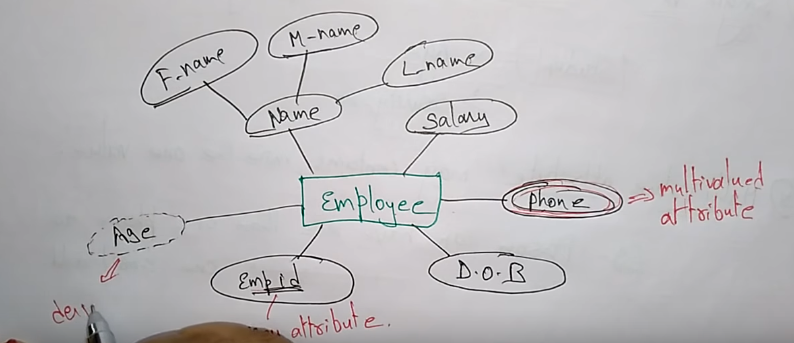 M-name
F-name
L-name
Name
Salary
Employee
Phone
=> multivalued
attribute
Age
Empid
D.O.B
attribute.